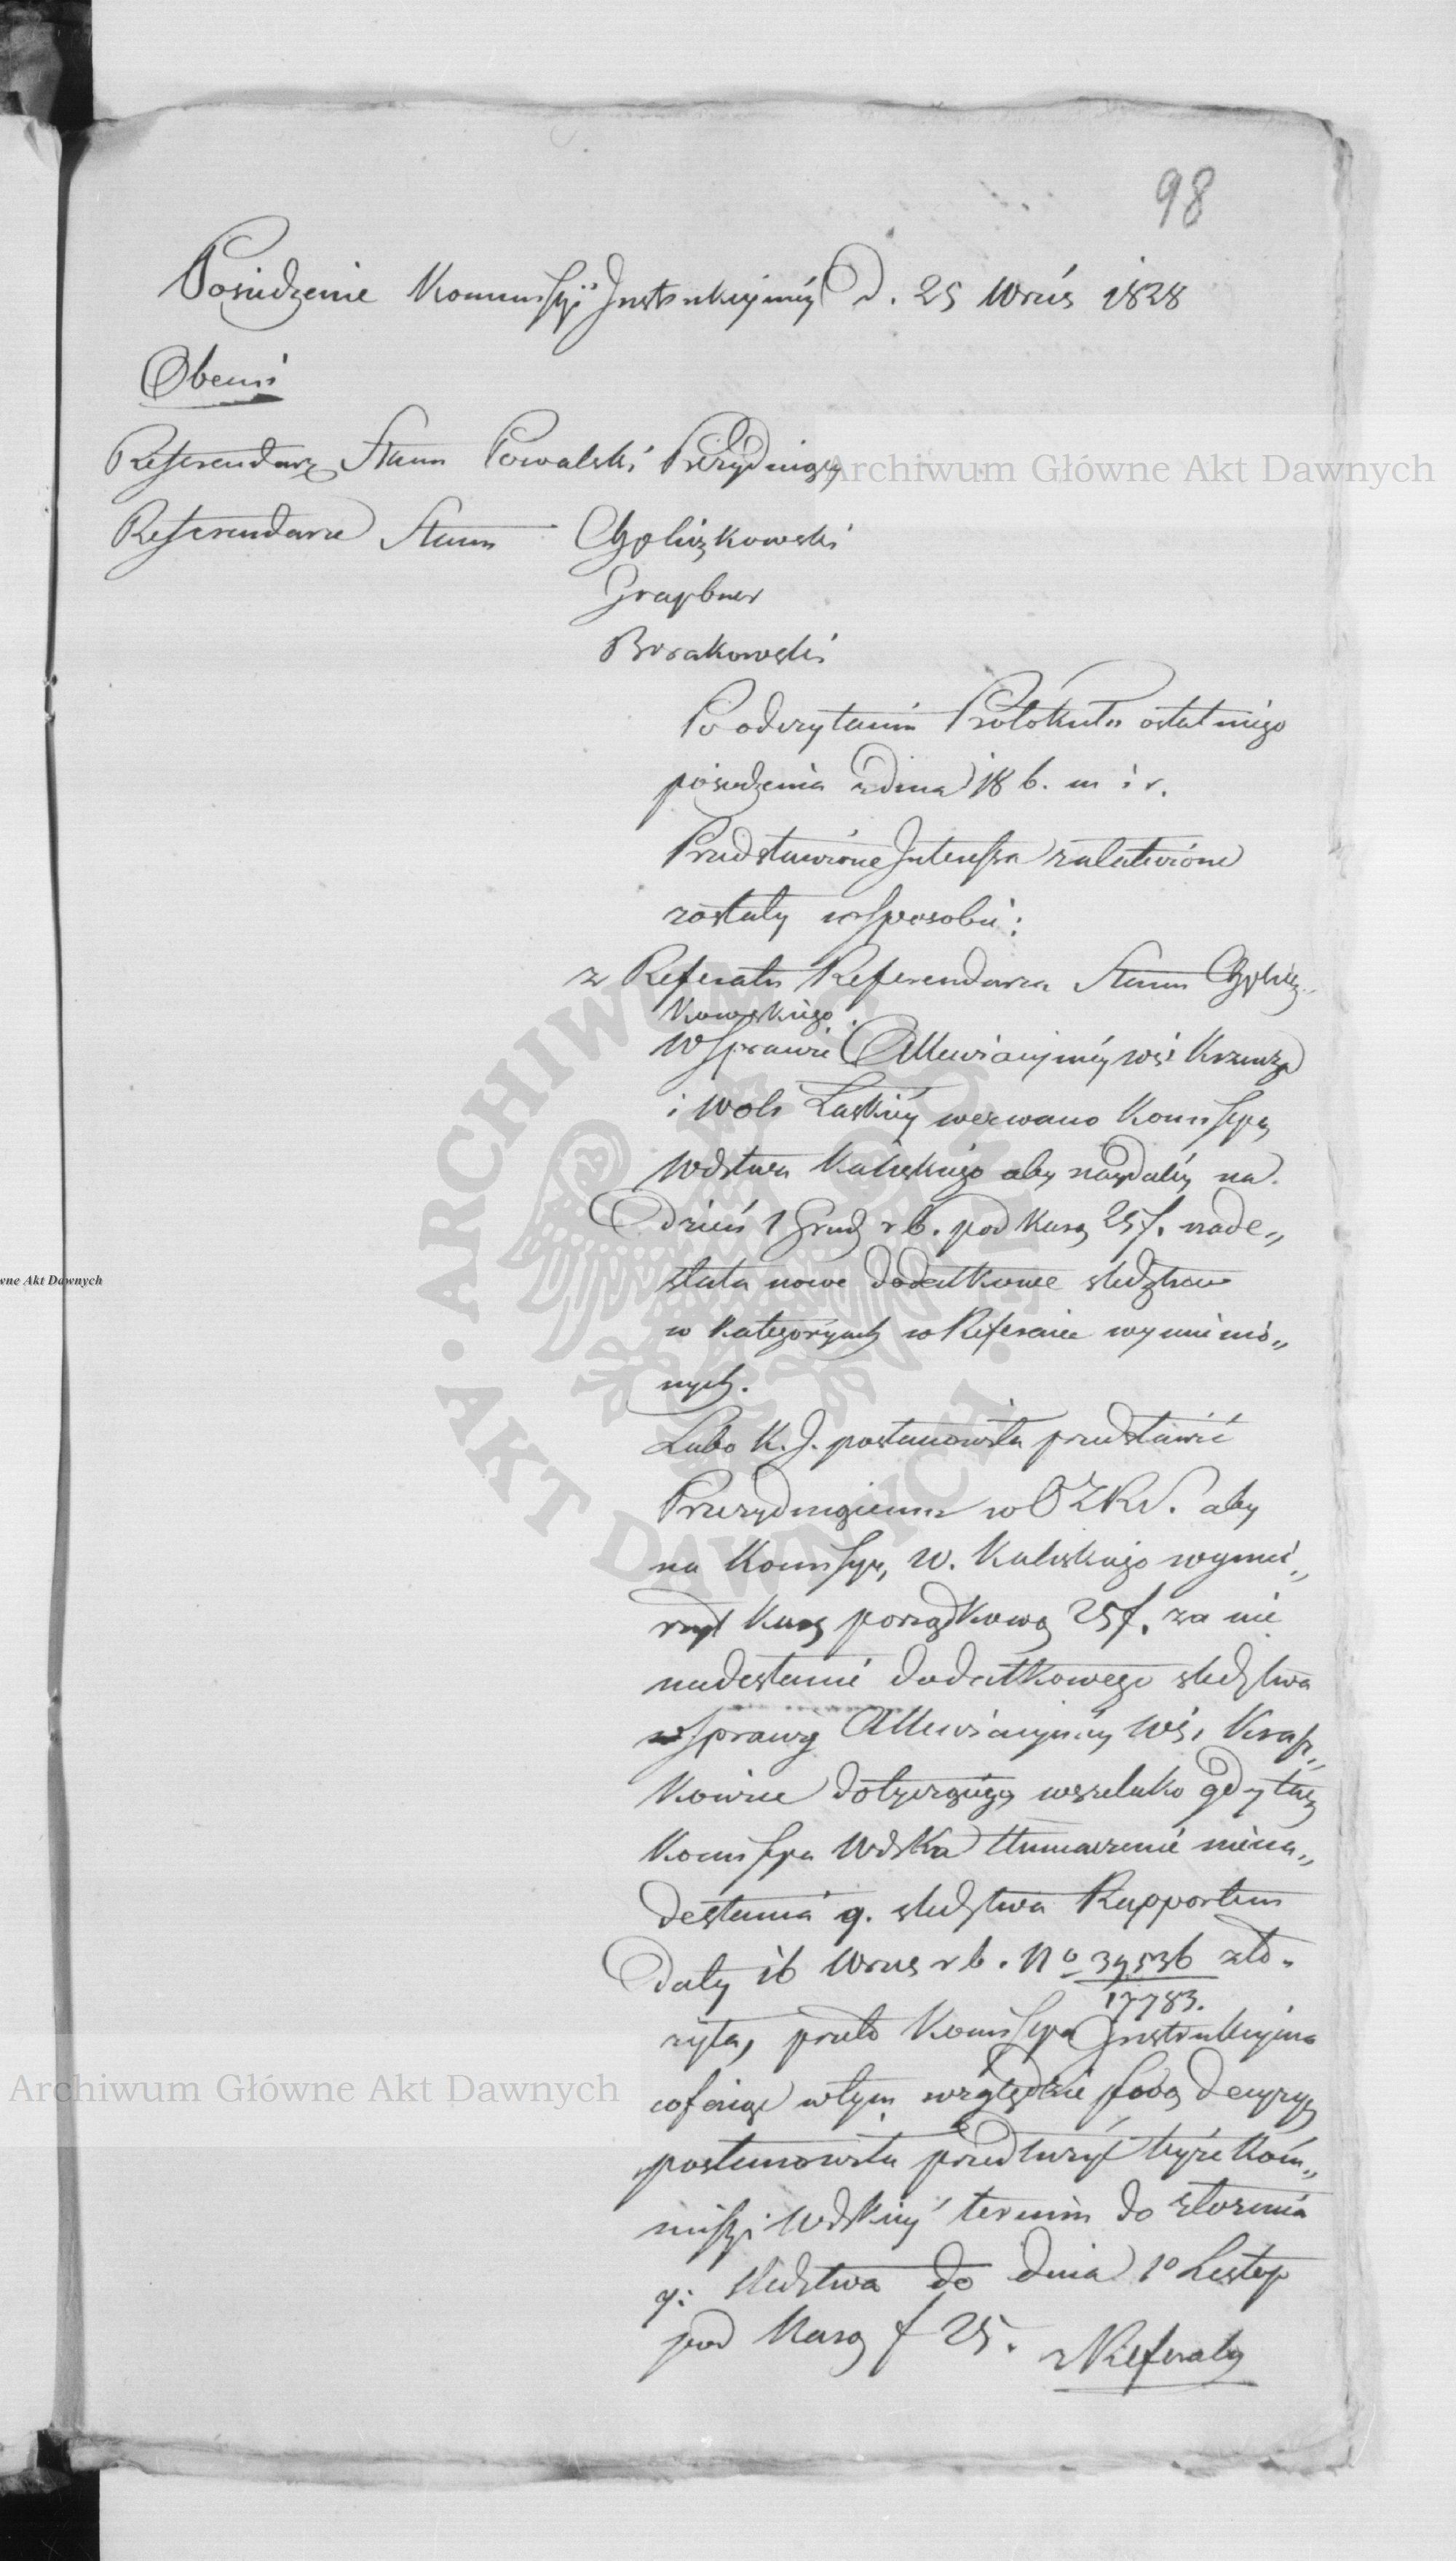 98
Posiedzenie Kommissyi Instrukcyjnéy d. 25 Wrześ 1828
Obecni
Referendarz Stanu Powalski Prezydujący
Referendarze Stanu
Graybner
Brzakowski
Po odczytaniu Protokułu ostatniego
posiedzenia z dnia 18 b. m i r.
Przedstawione Interessa załatwione
zostały w sposobie:
z Referatu Referendarza Stanu
kowskiego
W sprawie Allewiacyjnéy wsi
i Woli Łaskiéy wezwano Kommissyą
Wdztwa Kaliskiego aby naydaléy na
dzień 1 Grud r b. pod karą 25 f. nade„
słała nowe dodatkowe śledztwo
w kategoryach w Referacie wymienio„
nych.
Lubo K. I. postanowiła przedstawić
Prezydującemu w aby
na Kommissyę W. Kaliskiego wymie„
rzył karę porządkową 25 f. za nie
nadesłanie dodatkowego śledztwa
w sprawy Allewiacyjnéy wsi
kowice dotyczącego wszelako gdy taż
Kommissya Wdzka tłumaczenie niena„
desłania q. śledztwa Rapportem
daty 16 Wrześ r b. No 39536 zło„
17783.
żyła, przeto Kommissya Instrukcyjna
cofając w tym względzie swoą decyzyą
postanowiła przedłużyć téyże Kom„
missyi Wdzkiéy termin do złożenia
q: śledztwa do dnia 1o Listop
pod karą f 25. z Referatu
Archiwum Główne Akt Dawnych
wne Akt Dawnych
ARCHIWUM GŁÓWNE
AKT DAWNYCH
Archiwum Główne Akt Dawnych